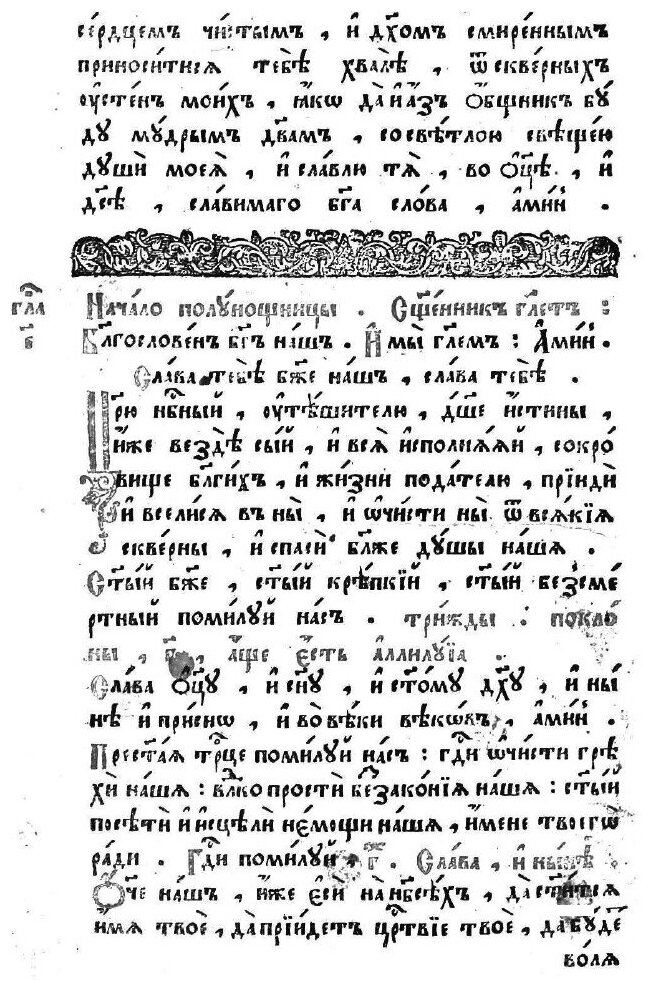 се́рдцемъ чи́стымъ , и҆ дх҃омъ смире́ннымъ
приноси́тися тебѣ̀ хвалѣ̀ , ѿ скве́рныхъ
оу҆сте́нъ мои́хъ , ꙗ҆́кѡ да и҆ а҆́зъ ѻ҆́бщникъ бꙋ́
дꙋ мꙋ́дрымъ дв҃амъ , со свѣ́тлою свѣще́ю
дꙋшѝ моеѧ̀ , и҆ сла́влю тѧ̀ , во ѻ҆ц҃ѣ̀ , и҆
дс҃ѣ̀ , сла́вимаго бг҃а сло́ва , а҆ми́нь .
гл҃а
в҃
Нача́ло полꙋ́нощницы . Сщ҃е́нникъ гл҃етъ :
Благослове́нъ бг҃ъ на́шъ . И҆ мы̀ гл҃емъ : А҆ми́нь .
Сла́ва тебѣ̀ бж҃е на́шъ , сла́ва тебѣ̀ .
Цр҃ю нб҃ный , оу҆тѣ́шителю , дш҃е и҆́стины ,
и҆́же вездѣ̀ сы́й , и҆ всѧ̀ и҆сполнѧ́ѧй , сокро́
вище бл҃ги́хъ , и҆ жи́зни пода́телю , прїидѝ
и҆ всели́сѧ въ ны̀ , и҆ ѡ҆чи́сти ны̀ ѿ всѧ́кїѧ
скве́рны , и҆ спасѝ бл҃же дꙋ́шы на́шѧ .
Ст҃ы́й бж҃е , ст҃ы́й крѣ́пкїй , ст҃ы́й безсме́
ртный поми́лꙋй на́съ . три́жды : покло́
ны , г҃ , а҆́ще є҆́сть а҆ллилꙋ́їа .
Сла́ва ѻ҆ц҃ꙋ̀ , и҆ сн҃ꙋ , и҆ ст҃о́мꙋ дх҃ꙋ , и҆ ны́
нѣ и҆ при́снѡ , и҆ во вѣ́ки вѣкѡ́въ , а҆ми́нь .
Прест҃а́ѧ тро́це поми́лꙋй на́съ : гд҃и ѡ҆чи́сти грѣ
хѝ на́шѧ : влд҃ко простѝ беззако́нїѧ на́шѧ : ст҃ы́й
посѣтѝ и҆ и҆сцѣлѝ не́мощи на́шѧ , и҆́мене твоегѡ̀
ра́ди . Гд҃и поми́лꙋй , г҃ . Сла́ва , и҆ ны́нѣ .
Ѻ҆́ч҃е на́шъ , и҆́же є҆сѝ на нб҃сѣ́хъ , да ст҃и́тсѧ
и҆́мѧ твоѐ , да прїи́детъ црⷭ҇твїе твоѐ , да бꙋ́де
во́лѧ